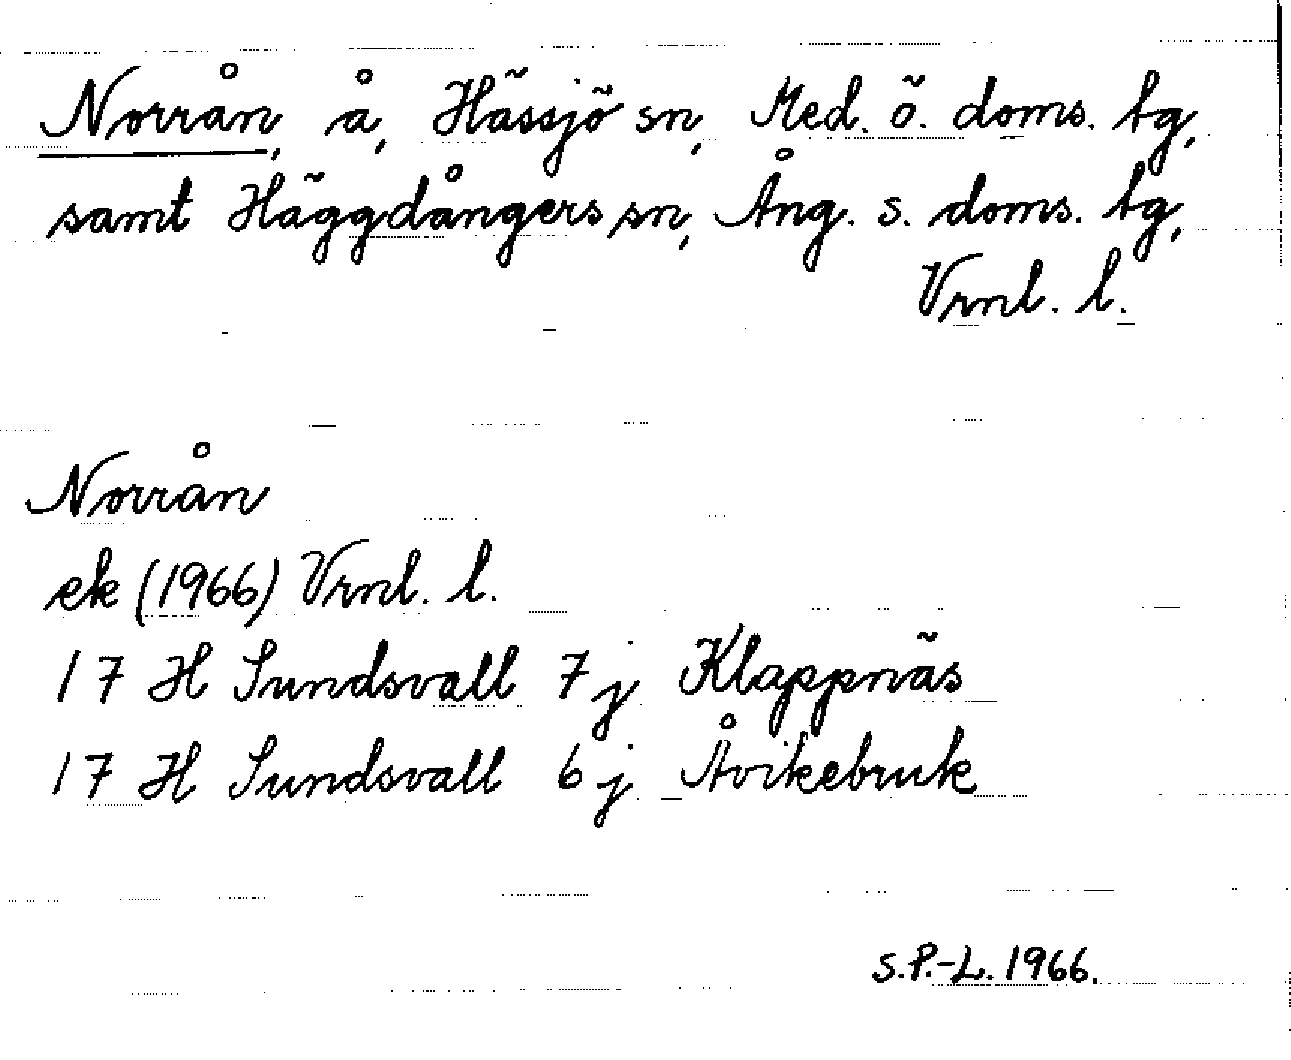 Norrån, å, Hässjö sn, Med. ö. doms. tg,
samt Häggdångers sn, Ång. s. doms. tg,
Vrnl. l.
Norrån
ek (1966) Vrnl. l.
17 H Sundsvall 7 j Klappnäs
17 H Sundsvall 6 j Åvikebruk
S.P.-L. 1966.